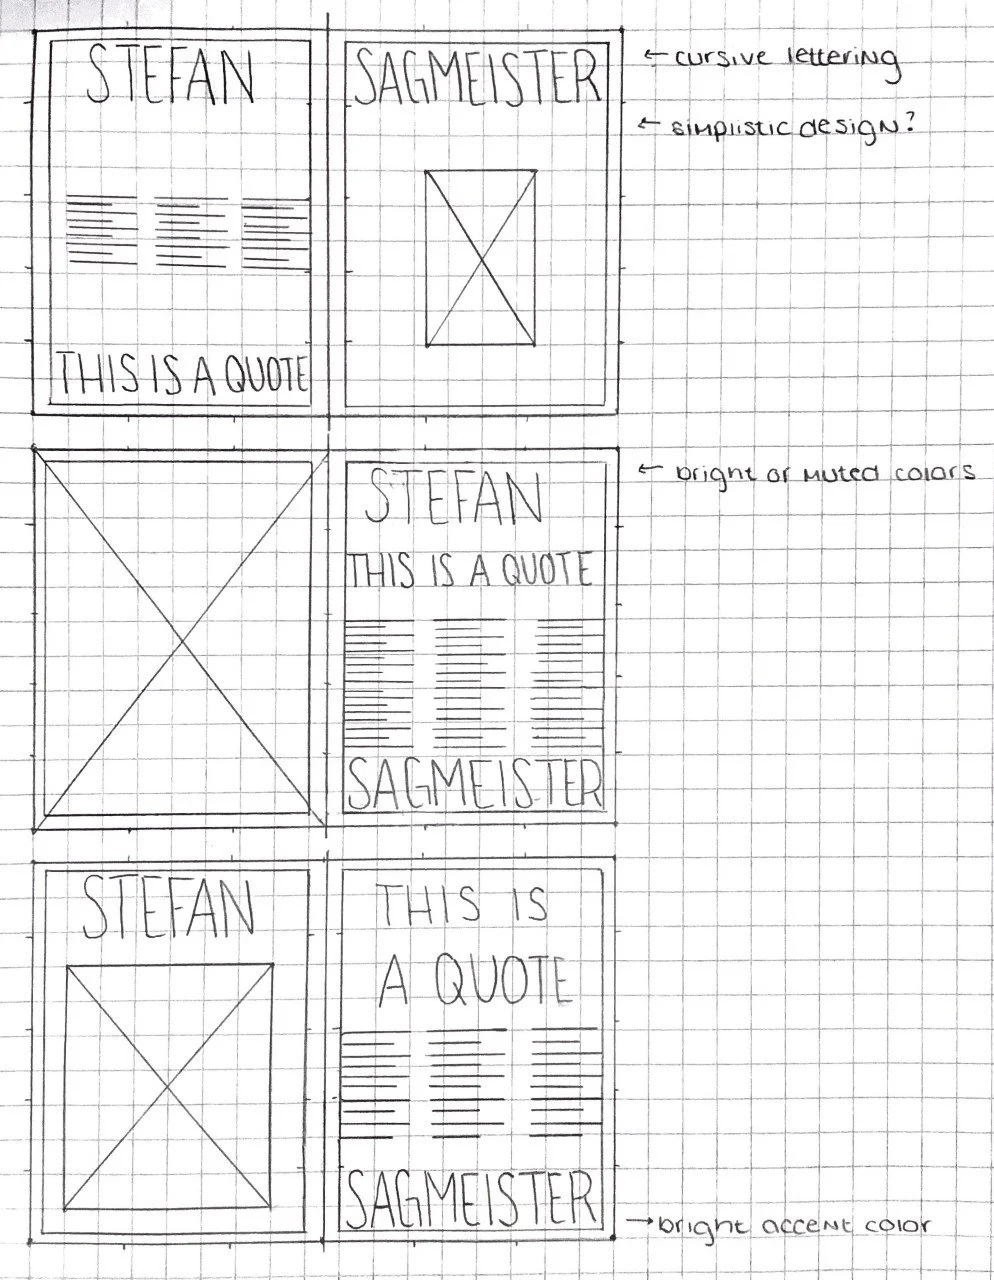 STEFAN
SAGMEISTER
← cursive lettering
← simplistic design?
THIS IS A QUOTE
← bright or muted colors
STEFAN
THIS IS A QUOTE
SAGMEISTER
STEFAN
THIS IS
A QUOTE
SAGMEISTER
→ bright accent color